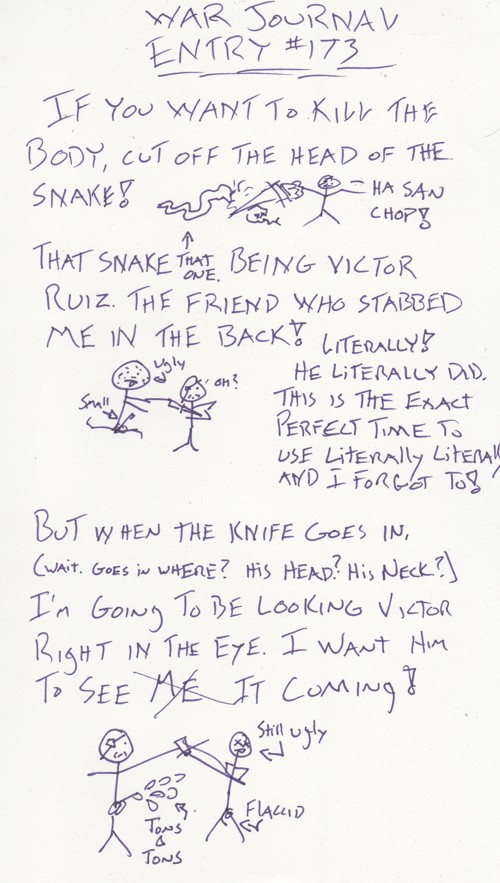 WAR JOURNAL
ENTRY #173
IF YOU WANT TO KILL THE
BODY, CUT OFF THE HEAD OF THE
SNAKE!
HA SAN
CHOP!
THAT SNAKE THAT ONE. BEING VICTOR
RUIZ. THE FRIEND WHO STABBED
ME IN THE BACK!
LITERALLY!
HE LITERALLY DID.
THIS IS THE EXACT
PERFECT TIME TO
USE LITERALLY LITERALLY
AND I FORGOT TO!
ugly
OH?
Small
BUT WHEN THE KNIFE GOES IN,
(WAIT. GOES IN WHERE? HIS HEAD? HIS NECK?)
I'M GOING TO BE LOOKING VICTOR
RIGHT IN THE EYE. I WANT HIM
TO SEE ME IT COMING!
Still ugly
FLACCID
TONS
&
TONS